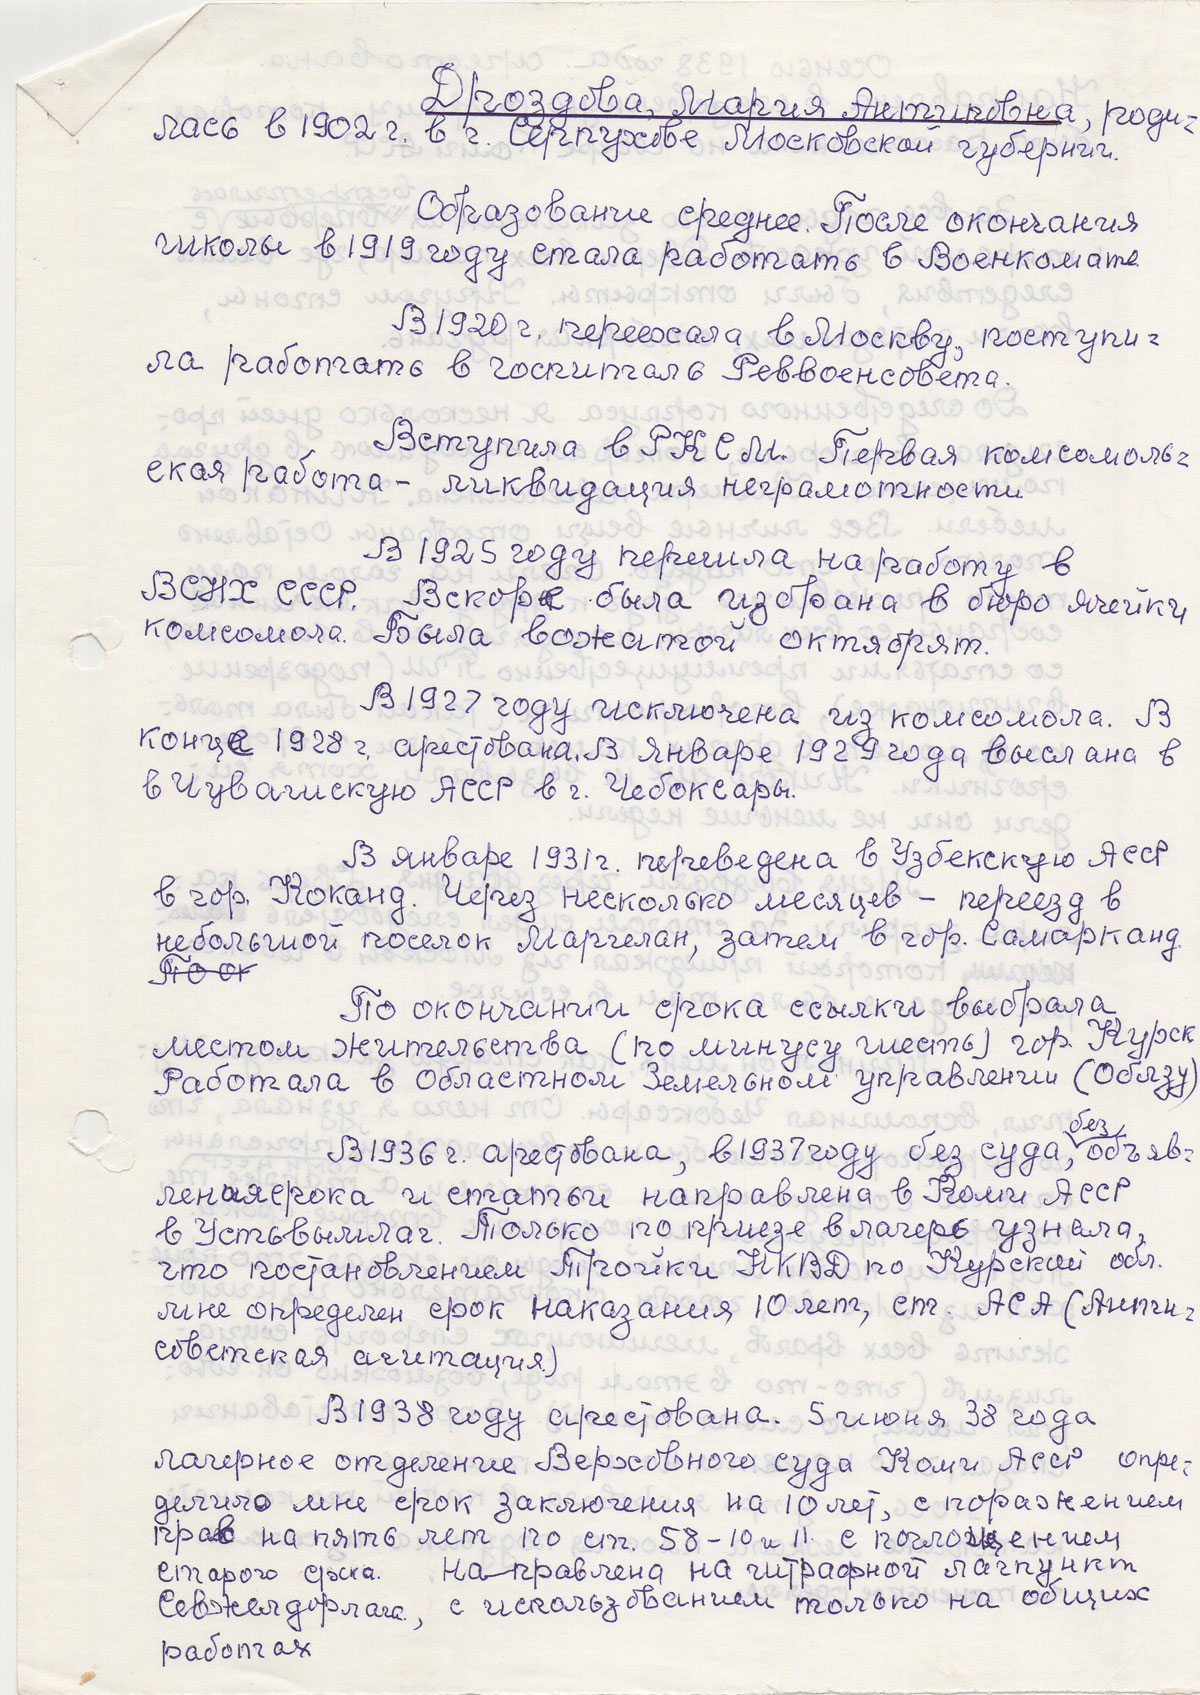 Дроздова, Мария Антиповна, роди=
лась в 1902 г. в г. Серпухове Московской губернии.
Образование среднее. После окончания
школы в 1919 году стала работать в Военкомате
В 1920 г. переехала в Москву, поступи=
ла работать в госпиталь Реввоенсовета.
Вступила в РКСМ. Первая комсомоль=
ская работа - ликвидация неграмотности
В 1925 году перешла на работу в
ВСНХ СССР. Вскоре была избрана в бюро ячейки
комсомола. Была вожатой октябрят.
В 1927 году исключена из комсомола. В
конце 1928 г. арестована. В январе 1929 года выслана в
в Чувашскую АССР в г. Чебоксары.
В январе 1931 г. переведена в Узбекскую АССР
в гор. Коканд. Через несколько месяцев - переезд в
небольшой поселок Маргелан, затем в гор. Самарканд.
По ок
По окончании срока ссылки выбрала
местом жительства (по минусу шесть) гор. Курск
Работала в Областном Земельном управлении (Облзу)
В 1936 г. арестована, в 1937 году без суда, без объяв=
ления срока и статьи направлена в Коми АССР
в Устьвымлаг. Только по приезе в лагерь узнала,
что постановлением Тройки НКВД по Курской обл.
мне определен срок наказания 10 лет, ст. АСА (Анти=
советская агитация)
В 1938 году арестована. 5 июня 38 года
лагерное отделение Верховного суда Коми АССР опре=
делило мне срок заключения на 10 лет, с поражением
прав на пять лет по ст. 58-10 и 11 с поглощением
старого срка. Направлена на штрафной лагпункт
Севжелдорлага, с использованием только на общих
работах